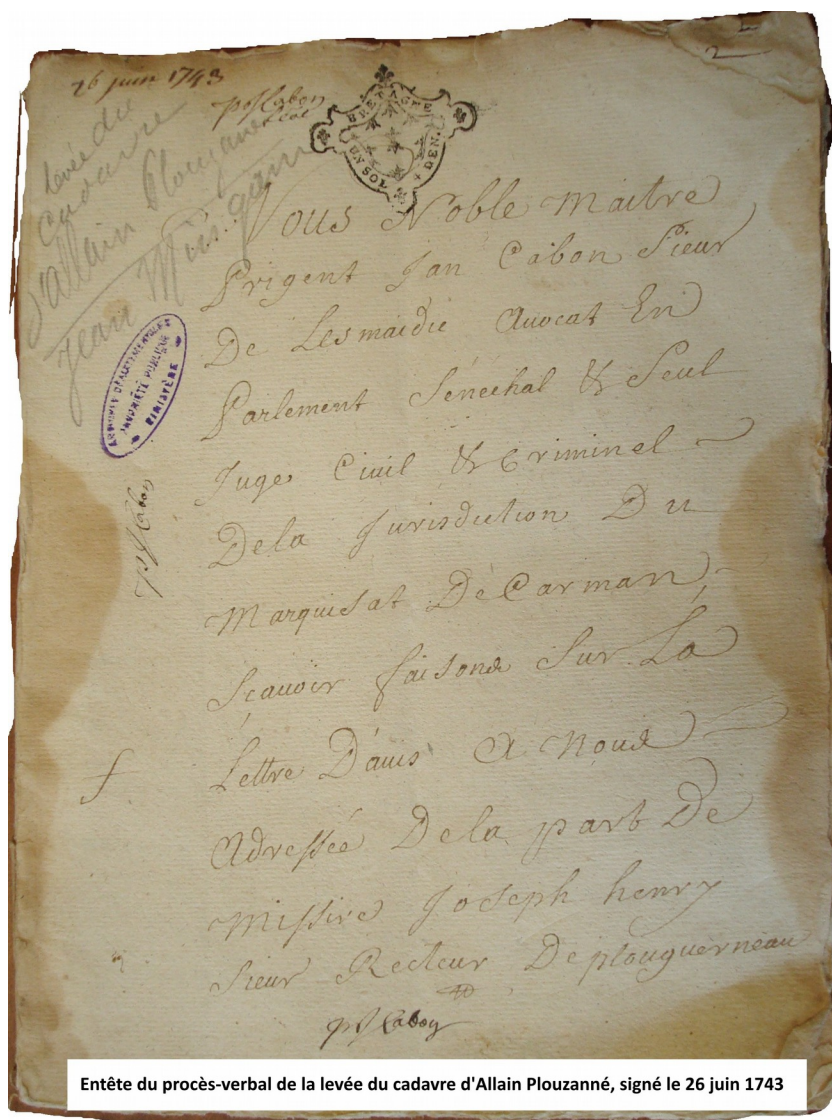 2
26 juin 1743
pj Cabon
levée du
cadavre
d'allain Plouzané
Jean
BRETAGNE
UN SOL
DEN.
ARCHIVES DÉPARTEMENTALES
PROPRIÉTÉ PUBLIQUE
FINISTÈRE
Nous Noble maitre
Prigent Jan Cabon Sieur
De Lesmaidic Avocat En
Parlement Senechal & Seul
Juge Civil & Criminel
Dela Jurisdiction Du
Marquisat De Carman,
Scavoir faisons Sur La
Lettre D'avis A Nous
Adressée Dela part De
Missire Joseph henry
Sieur Recteur De plouguerneau
pj Cabon
pj Cabon
Entête du procès-verbal de la levée du cadavre d'Allain Plouzanné, signé le 26 juin 1743